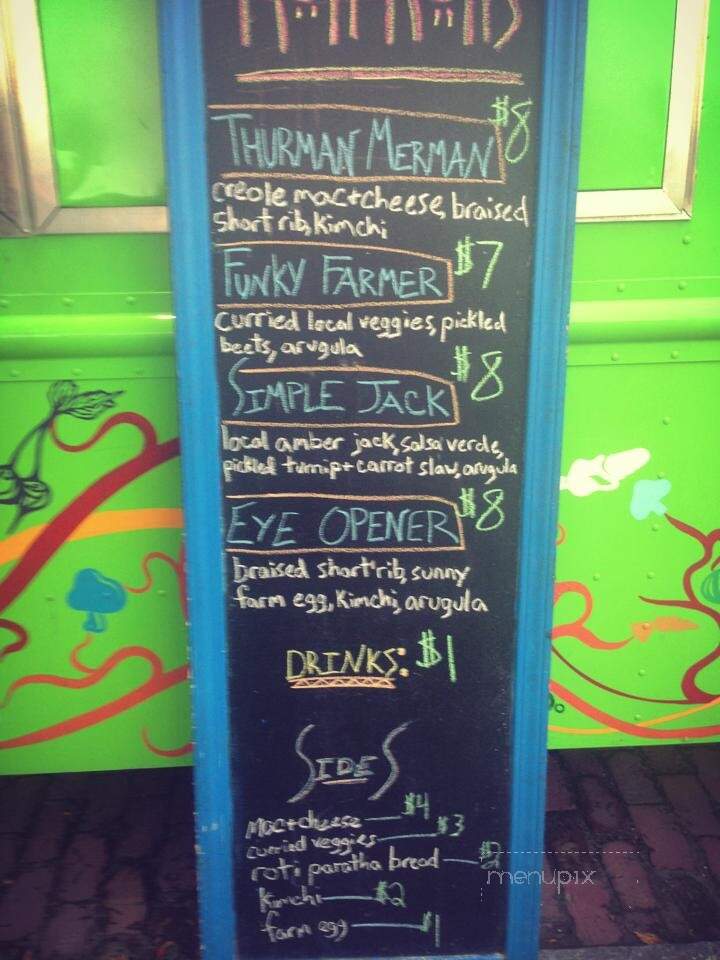 THURMAN MERMAN $8
creole mac+cheese, braised
short rib, kimchi
FUNKY FARMER $7
curried local veggies, pickled
beets, arugula
SIMPLE JACK $8
local amber jack, salsa verde,
pickled turnip + carrot slaw, arugula
EYE OPENER $8
braised short rib, sunny
farm egg, kimchi, arugula
DRINKS: $1
SIDES
mac+cheese — $4
curried veggies — $3
roti paratha bread — $2
kimchi — $2
farm egg — $1
menupix